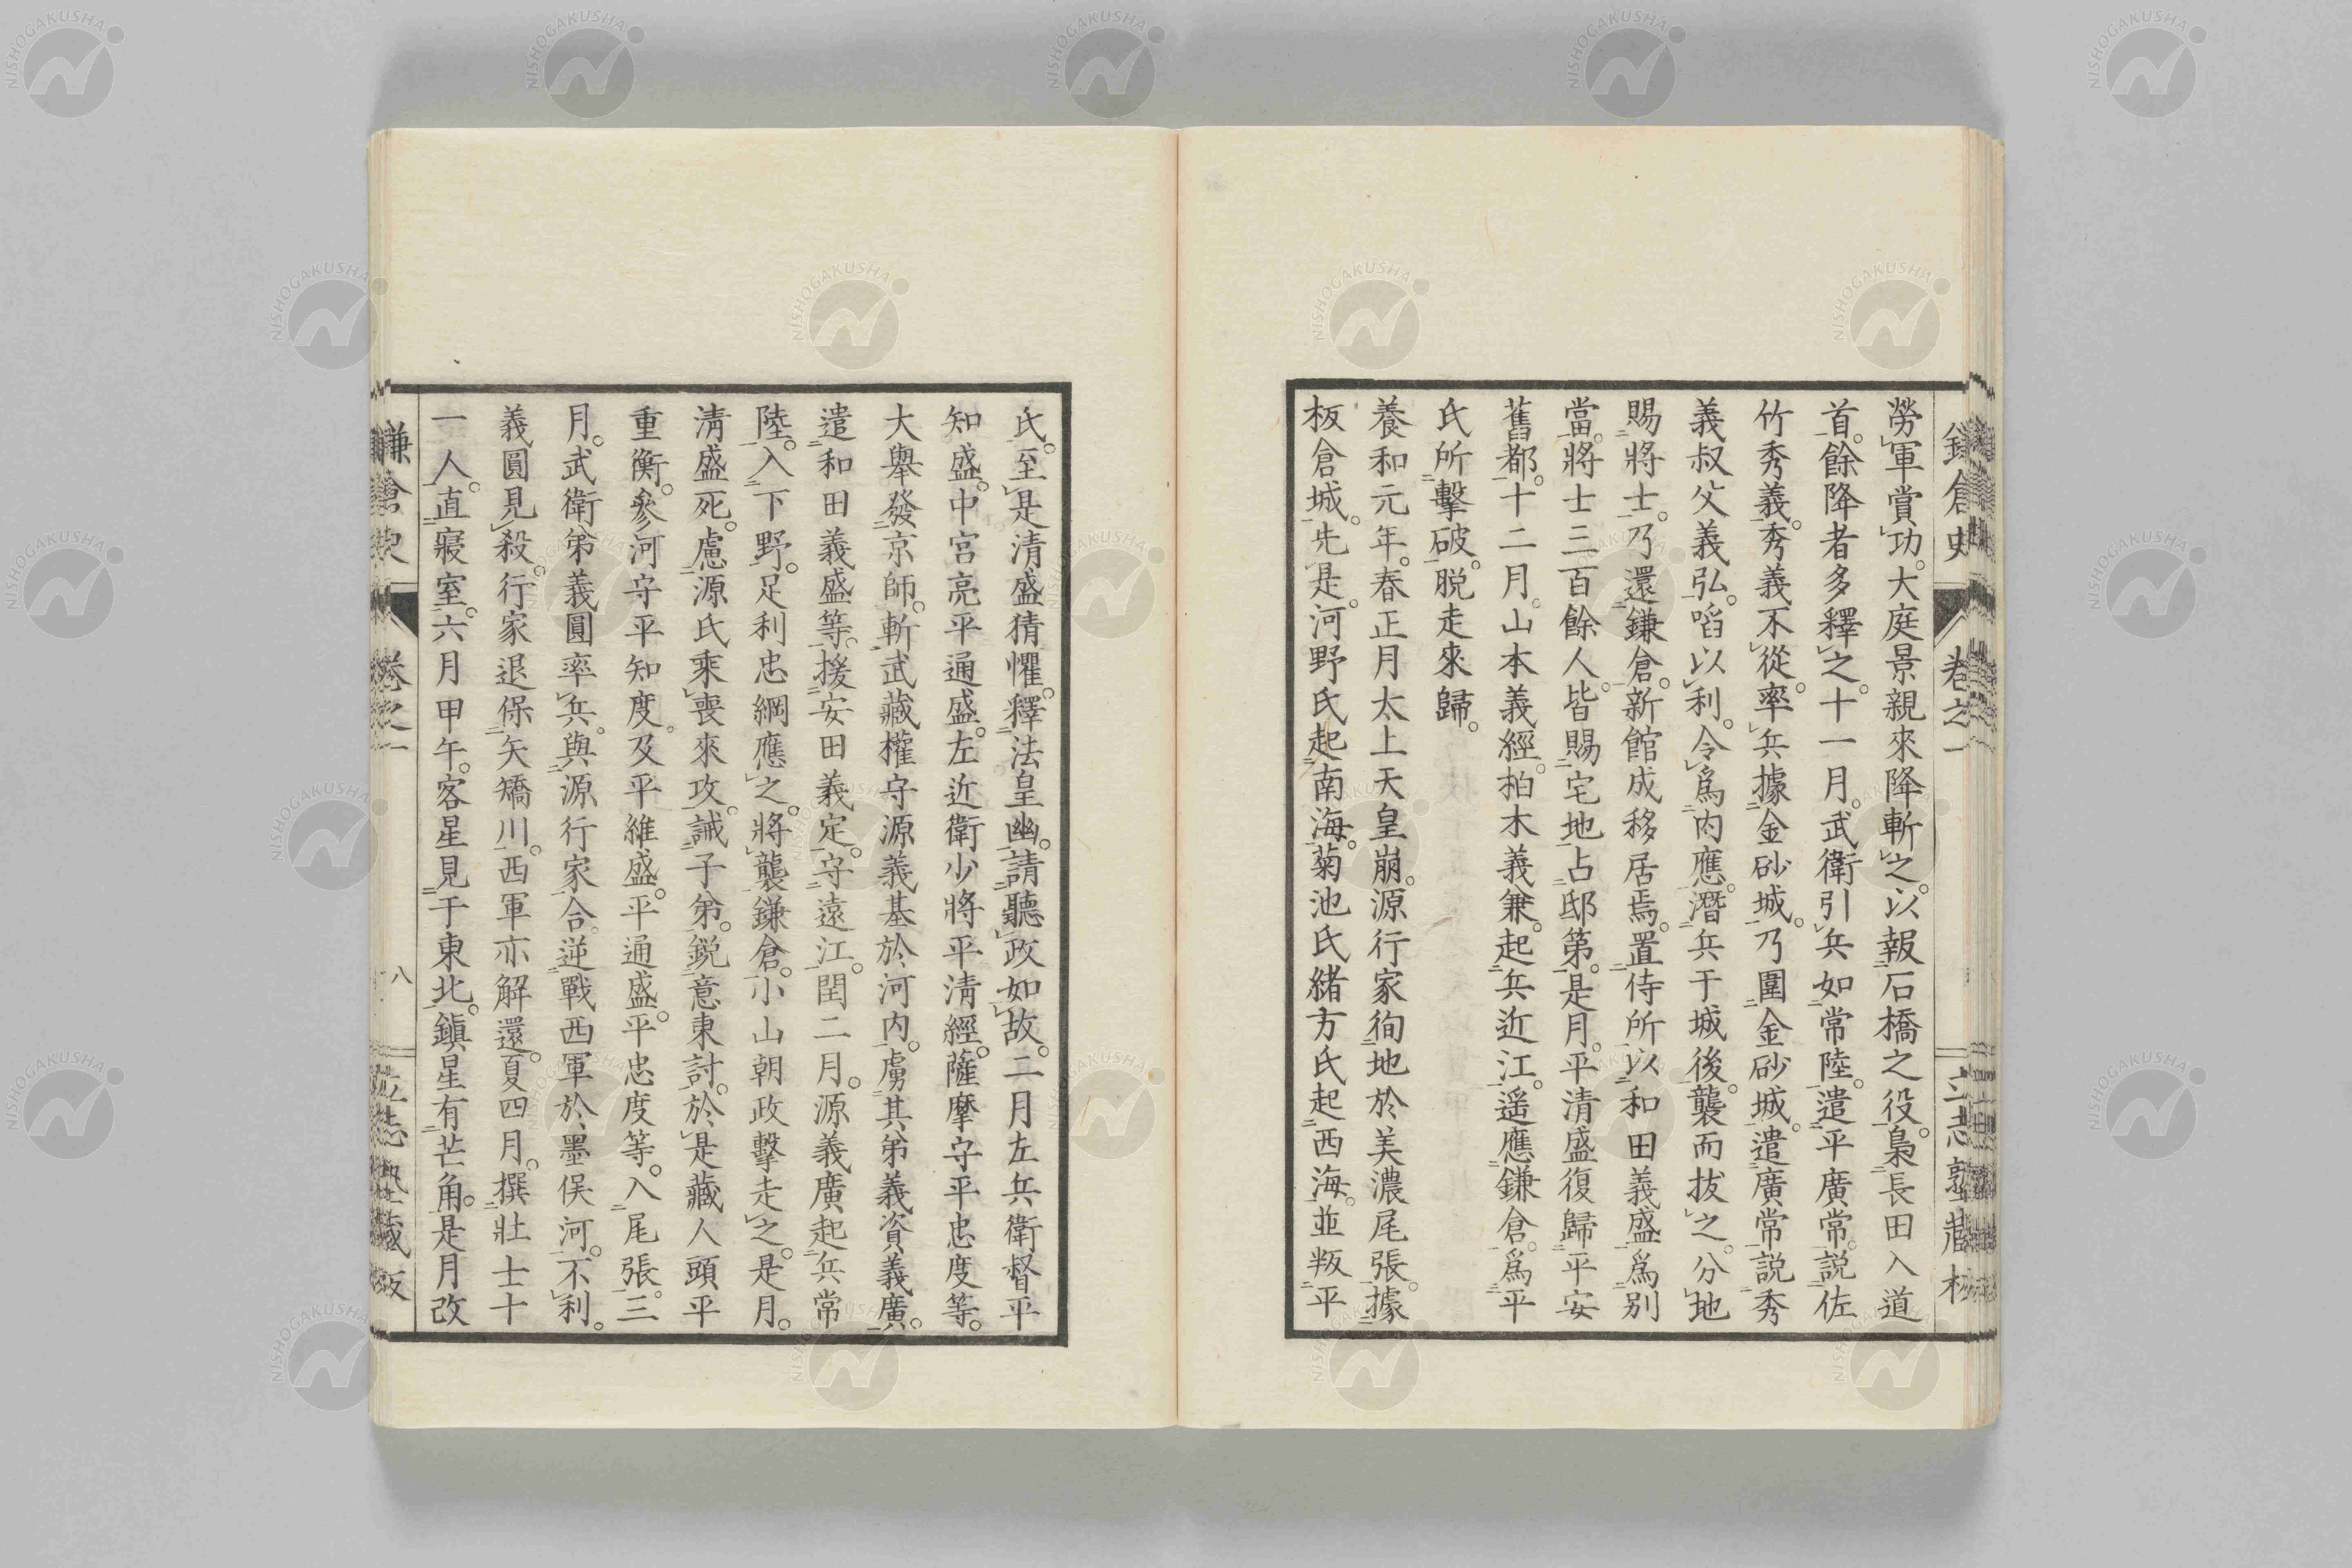 鎌倉史 卷之一
勞軍賞功。大庭景親來降斬之。以報石橋之役。梟長田入道
首。餘降者多釋之。十一月。武衛引兵如常陸。遣平廣常。説佐
竹秀義。秀義不從。率兵據金砂城。乃圍金砂城。遣廣常説秀
義叔父義弘。啗以利。令爲内應。潛兵于城後。襲而拔之。分地
賜將士。乃還鎌倉。新館成移居焉。置侍所。以和田義盛爲別
當。將士三百餘人。皆賜宅地占邸第。是月。平清盛復歸平安
舊都。十二月。山本義經。柏木義兼。起兵近江。遥應鎌倉。爲平
氏所擊破。脱走來歸。
養和元年。春正月太上天皇崩。源行家徇地於美濃尾張。據
板倉城。先是。河野氏起南海。菊池氏緒方氏起西海。並叛平
氏。至是清盛猜懼。釋法皇幽。請聽政如故。二月左兵衛督平
知盛。中宮亮平通盛。左近衛少將平淸經。薩摩守平忠度等。
大擧發京師。斬武藏權守源義基於河内。虜其弟義資義廣。
遣和田義盛等。援安田義定。守遠江。閏二月。源義廣起兵常
陸。入下野。足利忠綱應之。將襲鎌倉。小山朝政擊走之。是月。
淸盛死。慮源氏乘喪來攻。誡子弟。鋭意東討。於是藏人頭平
重衡。參河守平知度。及平維盛。平通盛。平忠度等。入尾張。三
月。武衛弟義圓率兵。與源行家合。逆戰西軍於墨俣河。不利。
義圓見殺。行家退保矢矯川。西軍亦解還。夏四月。撰壯士十
一人。直寢室。六月甲午。客星見于東北。鎭星有芒角。是月改
卷之一 八